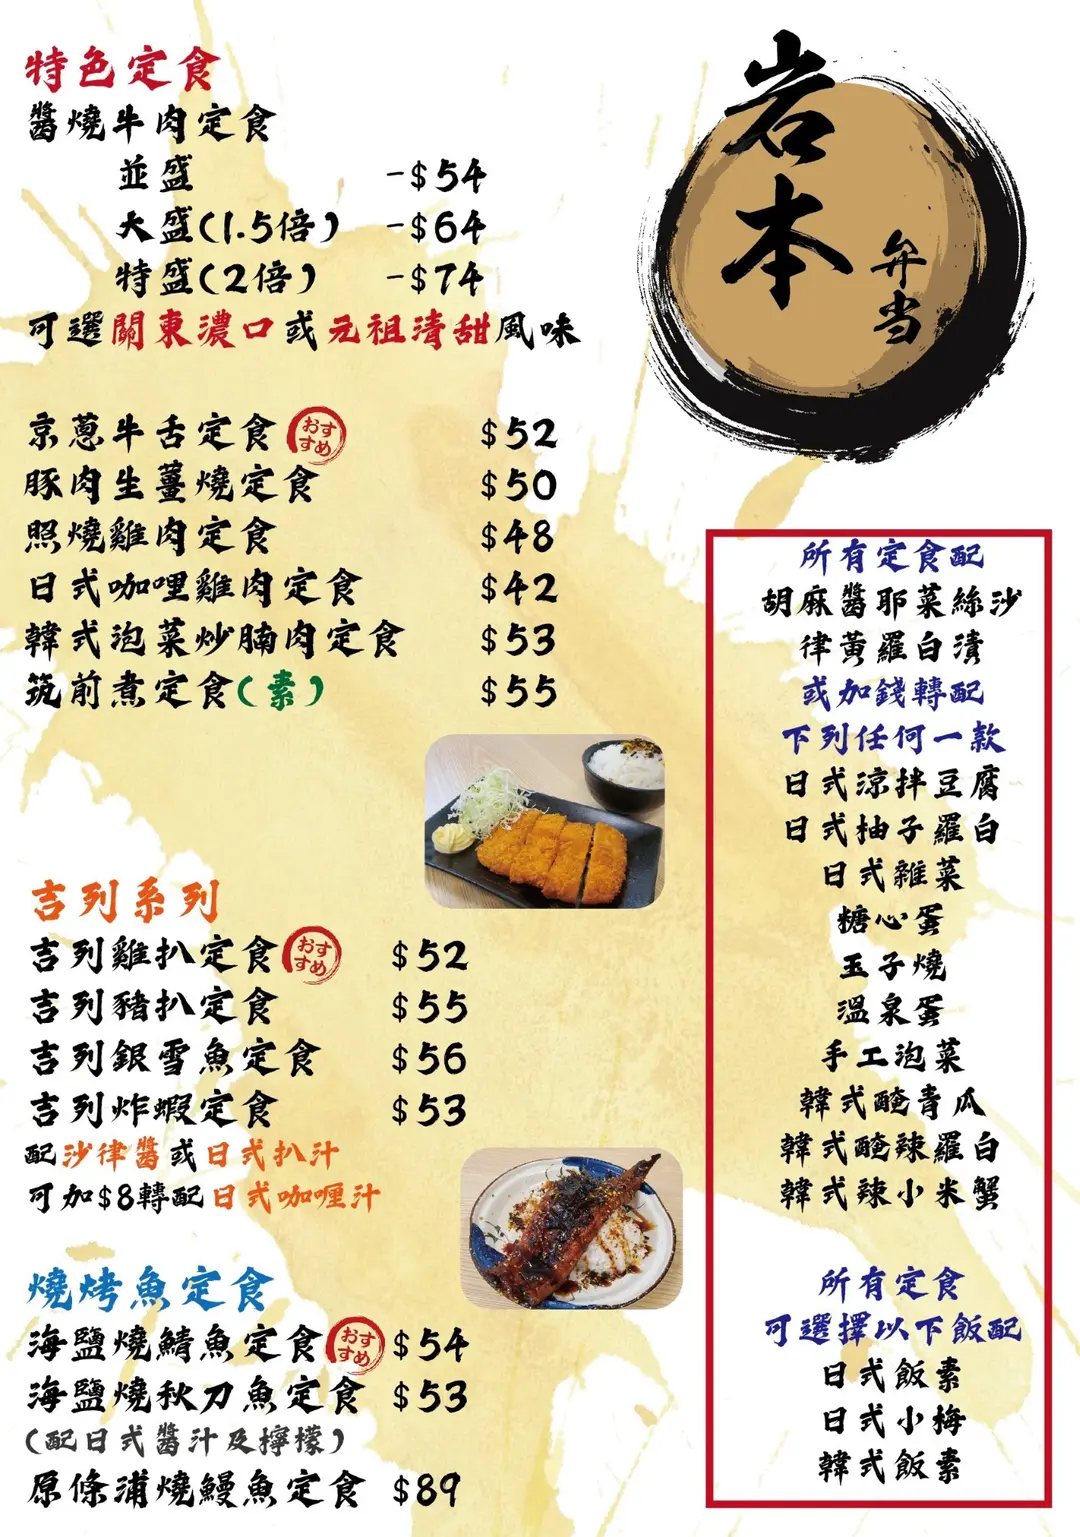 岩本
弁当
特色定食
醬燒牛肉定食
並盛 -$54
大盛(1.5倍) -$64
特盛(2倍) -$74
可選關東濃口或元祖清甜風味
京蔥牛舌定食 おすすめ $52
豚肉生薑燒定食 $50
照燒雞肉定食 $48
日式咖哩雞肉定食 $42
韓式泡菜炒腩肉定食 $53
筑前煮定食(素) $55
吉列系列
吉列雞扒定食 おすすめ $52
吉列豬扒定食 $55
吉列銀雪魚定食 $56
吉列炸蝦定食 $53
配沙律醬或日式扒汁
可加$8轉配日式咖喱汁
燒烤魚定食
海鹽燒鯖魚定食 おすすめ $54
海鹽燒秋刀魚定食 $53
(配日式醬汁及檸檬)
原條浦燒鰻魚定食 $89
所有定食配
胡麻醬耶菜絲沙
律黃羅白漬
或加錢轉配
下列任何一款
日式涼拌豆腐
日式柚子羅白
日式雜菜
糖心蛋
玉子燒
溫泉蛋
手工泡菜
韓式醃青瓜
韓式醃辣羅白
韓式辣小米蟹
所有定食
可選擇以下飯配
日式飯素
日式小梅
韓式飯素